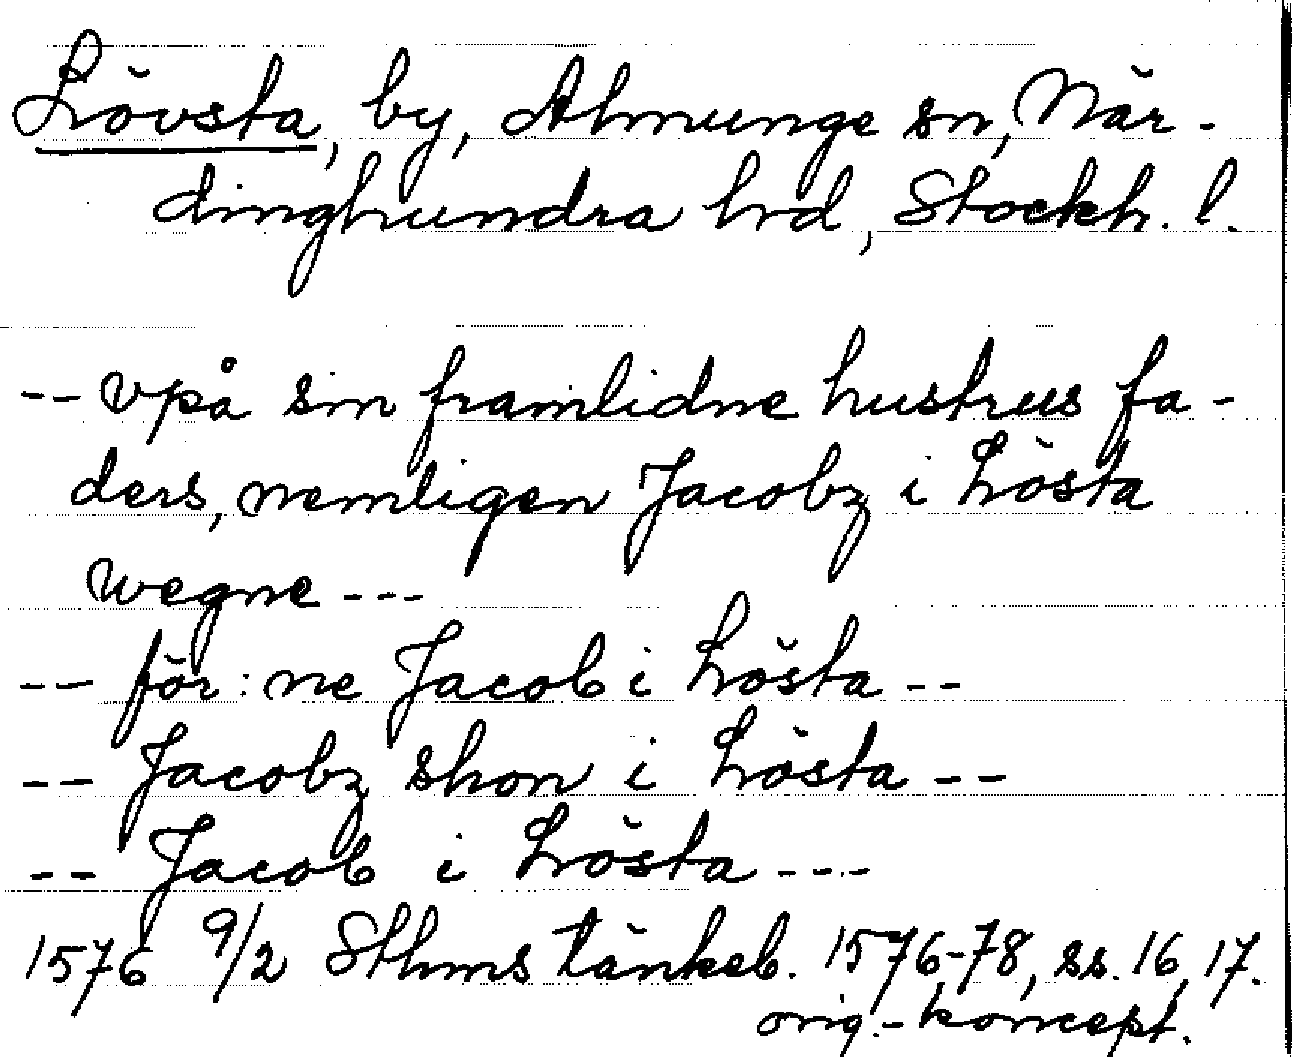 Lövsta, by, Almunge sn, När-
dinghundra hrd, Stockh. l.
-- vpå sin framlidne hustrus fa-
ders, nemligen Jacobz i Lösta
wegne ---
-- för:ne Jacob i Lösta --
-- Jacobz shon i Lösta --
-- Jacob i Lösta ---
1576 9/2 Sthms tänkeb. 1576-78, ss. 16, 17.
orig.-koncept.